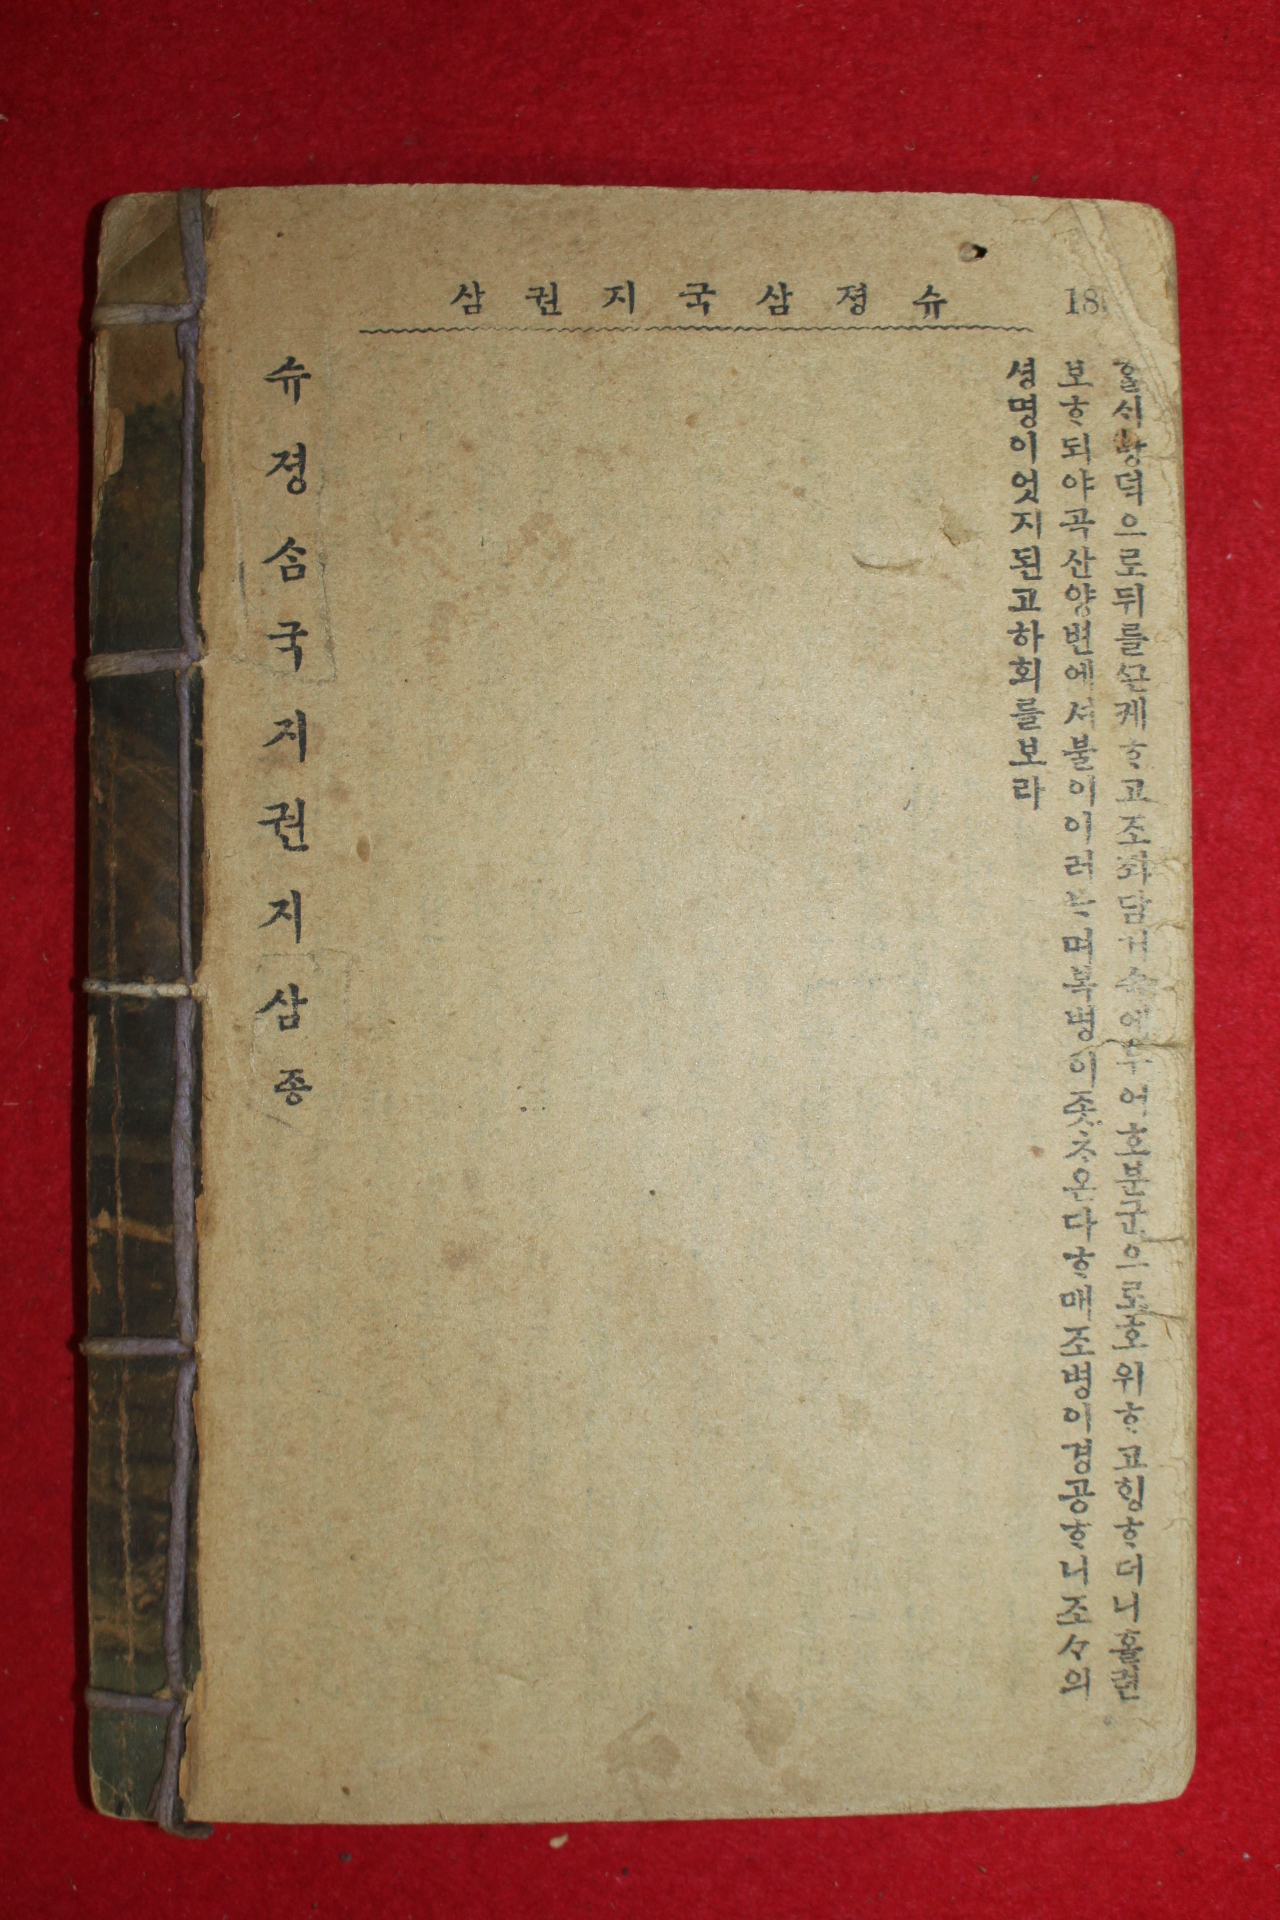 슈졍삼국지권삼
18
ᄒᆞᆯᄉᆡ방덕으로뒤를ᄭᅳᆫ케ᄒᆞ고조 담거속에두어호분군으로호위ᄒᆞ고ᄒᆡᆼᄒᆞ더니홀련
보ᄒᆞ되야곡산양변에셔불이이러ᄂᆞ며복병이좃ᄎᆞ온다ᄒᆞ매조병이경공ᄒᆞ니조々의
셩명이엇지된고하회를보라
슈졍삼국지권지삼종